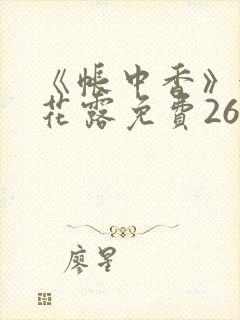 《帳中香》
花露免費26
廖星